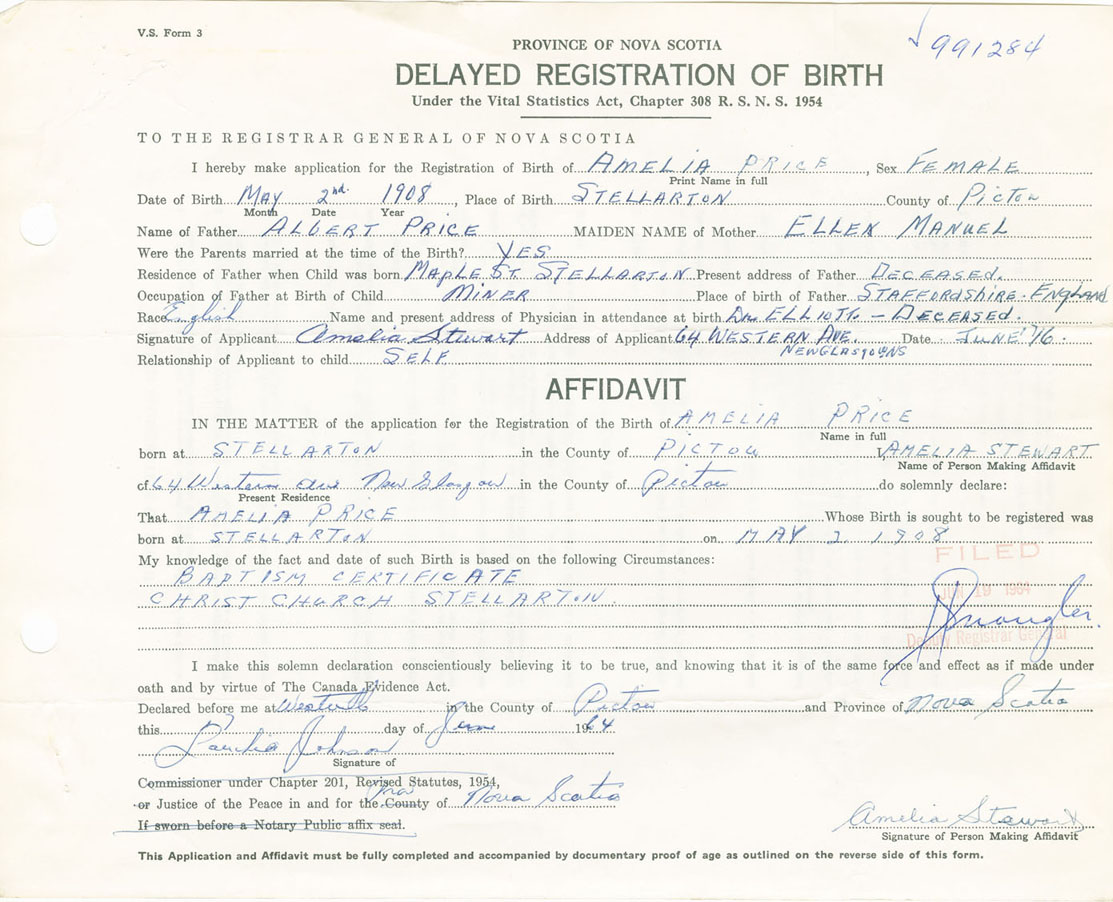 V.S. Form 3
991284
PROVINCE OF NOVA SCOTIA
DELAYED REGISTRATION OF BIRTH
Under the Vital Statistics Act, Chapter 308 R. S. N. S. 1954
TO THE REGISTRAR GENERAL OF NOVA SCOTIA
I hereby make application for the Registration of Birth of AMELIA PRICE, Sex FEMALE
Print Name in full
Date of Birth MAY 2nd. 1908, Place of Birth STELLARTON County of Picton
Month Date Year
Name of Father ALBERT PRICE MAIDEN NAME of Mother ELLEN MANUEL
Were the Parents married at the time of the Birth? YES
Residence of Father when Child was born MAPLE ST. STELLARTON Present address of Father DECEASED.
Occupation of Father at Birth of Child MINER Place of birth of Father STAFFORDSHIRE. ENGLAND
Race English Name and present address of Physician in attendance at birth DR. ELLIOTT. - DECEASED.
Signature of Applicant Amelia Stewart Address of Applicant 64 WESTERN AVE. Date JUNE
NEW GLASGOW NS
Relationship of Applicant to child SELF
AFFIDAVIT
IN THE MATTER of the application for the Registration of the Birth of AMELIA PRICE
Name in full
born at STELLARTON in the County of PICTOU I, AMELIA STEWART
Name of Person Making Affidavit
of 64 Western ave New Glasgow in the County of Pictou do solemnly declare:
Present Residence
That AMELIA PRICE Whose Birth is sought to be registered was
born at STELLARTON on MAY 2 1908
FILED
My knowledge of the fact and date of such Birth is based on the following Circumstances:
BAPTISM CERTIFICATE
JUN 19 1964
CHRIST CHURCH STELLARTON.
Deputy Registrar General
I make this solemn declaration conscientiously believing it to be true, and knowing that it is of the same force and effect as if made under
oath and by virtue of The Canada Evidence Act.
Declared before me at Westville in the County of Pictou and Province of Nova Scotia
this day of June 1964
Johnson
Signature of
Commissioner under Chapter 201, Revised Statutes, 1954,
or Justice of the Peace in and for the County of Nova Scotia
If sworn before a Notary Public affix seal.
Amelia Stewart
Signature of Person Making Affidavit
This Application and Affidavit must be fully completed and accompanied by documentary proof of age as outlined on the reverse side of this form.